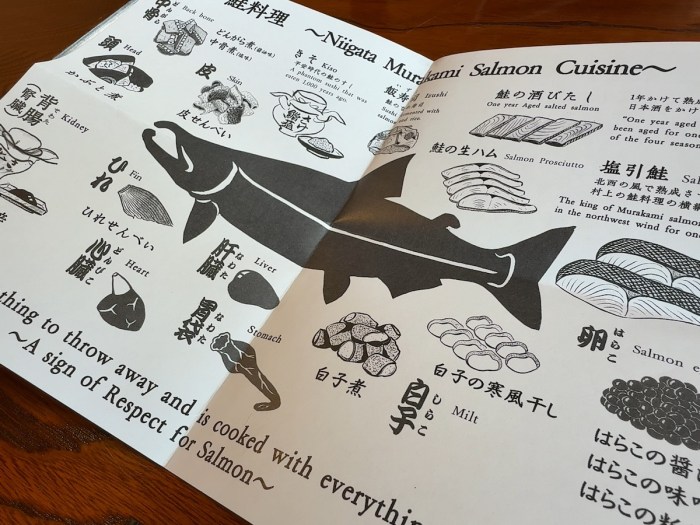 鮭料理 ～Niigata Murakami Salmon Cuisine～
中骨
Back bone
どんがら煮(醤油味)
中骨煮(塩味)
頭
Head
かぶと煮
皮
Skin
皮せんべい
きそ Kiso
平安時代の鮭のすし
A phantom sushi that was
eaten 1,000 years ago.
鮭の酒びたし
One year Aged salted salmon
1年かけて熟
日本酒をかけ
"One year aged
been aged for one
of the four season
鮭の生ハム Salmon Prosciutto
塩引鮭
北西の風で熟成さ
村上の鮭料理の横綱
The king of Murakami salmon
in the northwest wind for one
背腸
腎臓
Kidney
ひれ
Fin
ひれせんべい
心臓
どんびこ
Heart
肝臓
なわた
Liver
胃袋
なわた
Stomach
白子煮
白子の寒風干し
白子
しらこ
Milt
卵
はらこ
Salmon e
はらこの醤
はらこの味
はらこの粕
thing to throw away and is cooked with everythin
～A sign of Respect for Salmon～